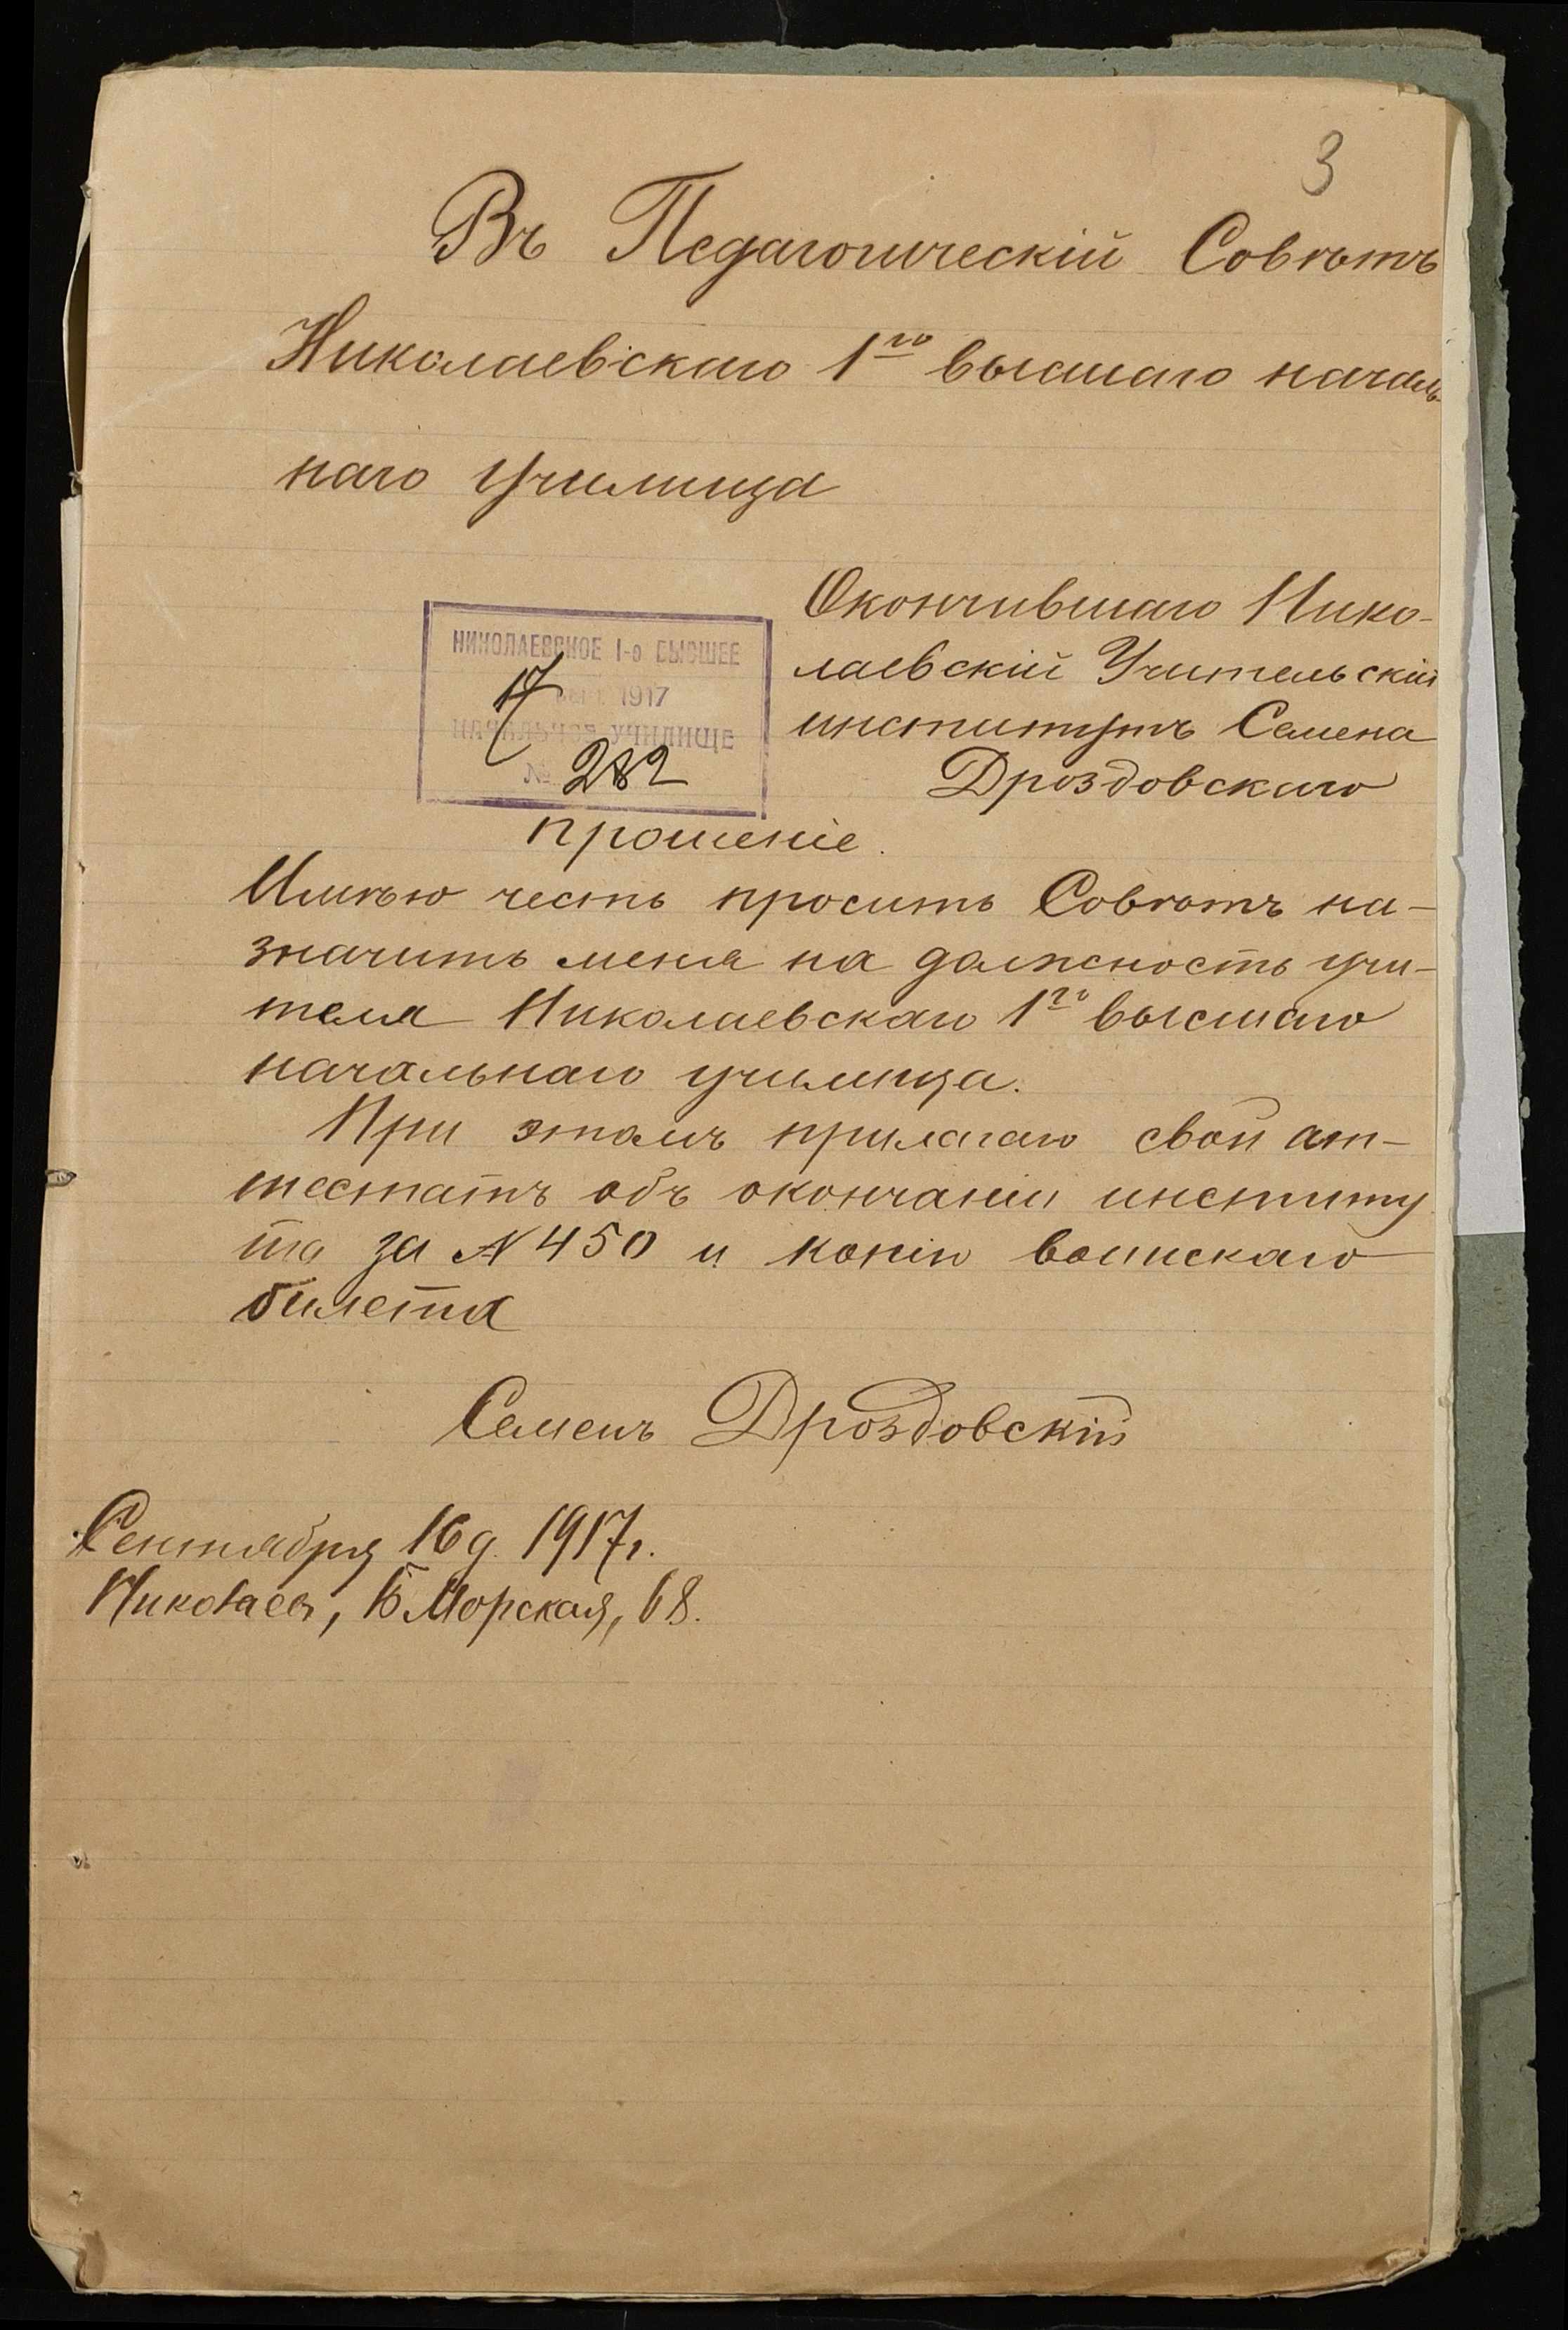 3
Въ Педагогическій Совѣтъ
Николаевскаго 1го высшаго началь-
наго училища
Окончившаго Нико-
лаевскій Учительскій
институтъ Семена
Дроздовскаго
НИКОЛАЕВСКОЕ 1-е ВЫСШЕЕ
17 1917
НАЧАЛЬНОЕ УЧИЛИЩЕ
№ 282
прошеніе.
Имѣю честь просить Совѣтъ на-
значить меня на должность учи-
теля Николаевскаго 1го высшаго
начальнаго училища.
При этомъ прилагаю свой ат-
тестатъ объ окончаніи институ
та за № 450 и копію воинскаго
билета
Семенъ Дроздовскій
Сентября 16 д. 1917 г.
Николаевъ, Б Морская, 68.